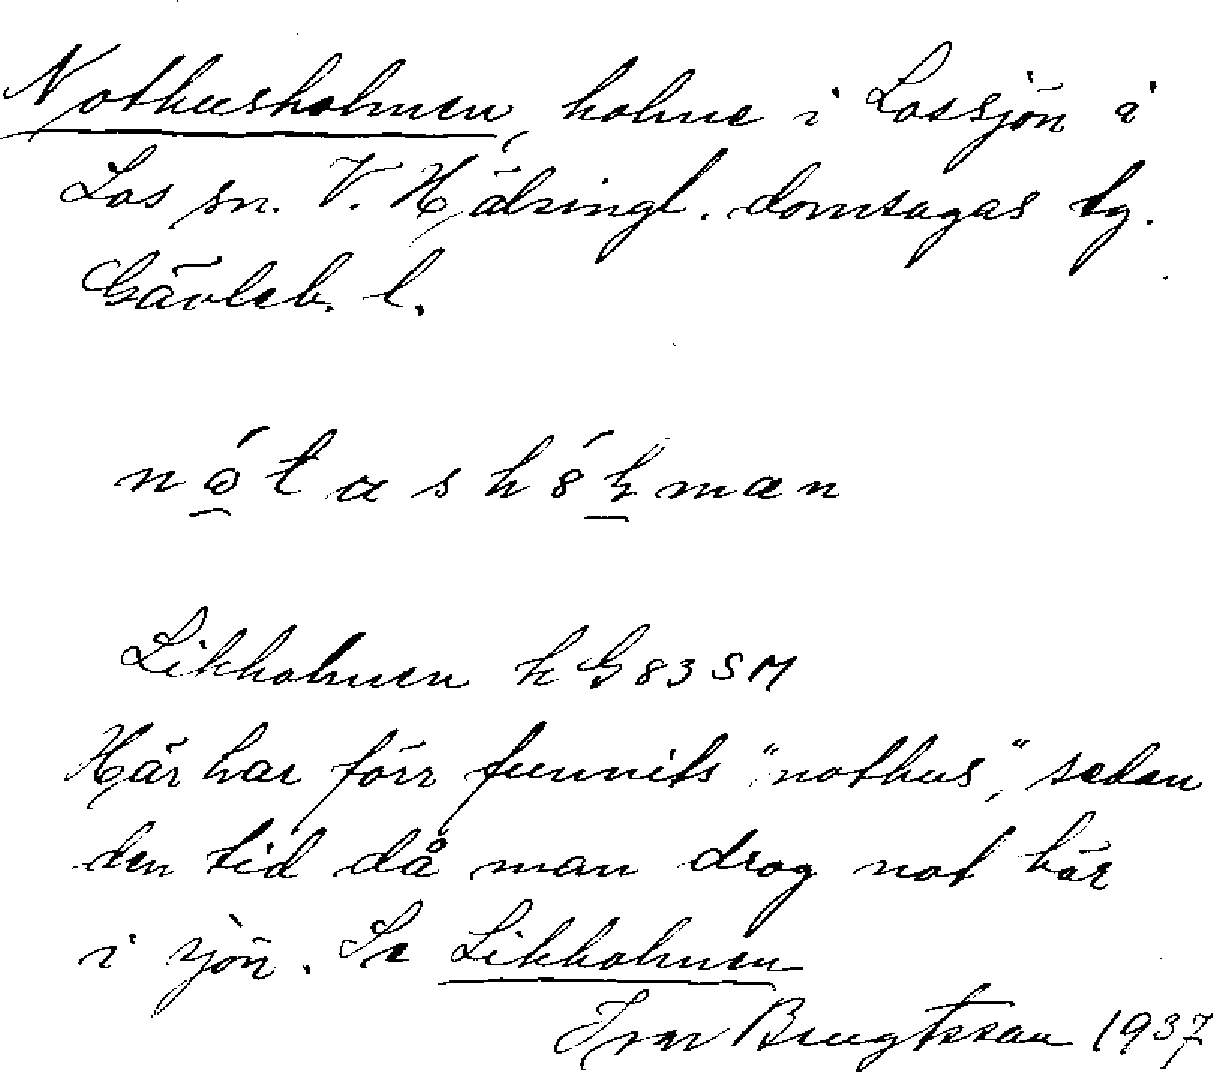 Nothusholmen, holme i Lossjön i
Los sn. V. Hälsingl. domsagas tg.
Gävleb. l.
Likholmen k G 83 SM
Här har förr funnits "nothus", sedan
den tid då man drog not här
i sjön. Se Likholmen
Ivar Bengtsson 1937